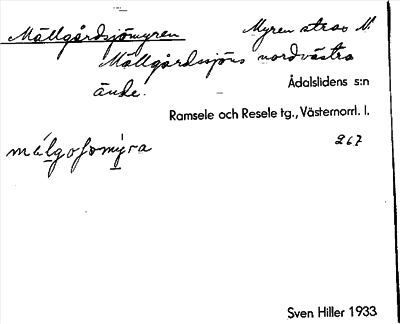 Mällgårdsjömyren Myren strax N.
Mällgårdssjöns nordvästra
ände.
Ådalslidens s:n
Ramsele och Resele tg., Västernorrl. l.
267
Sven Hiller 1933